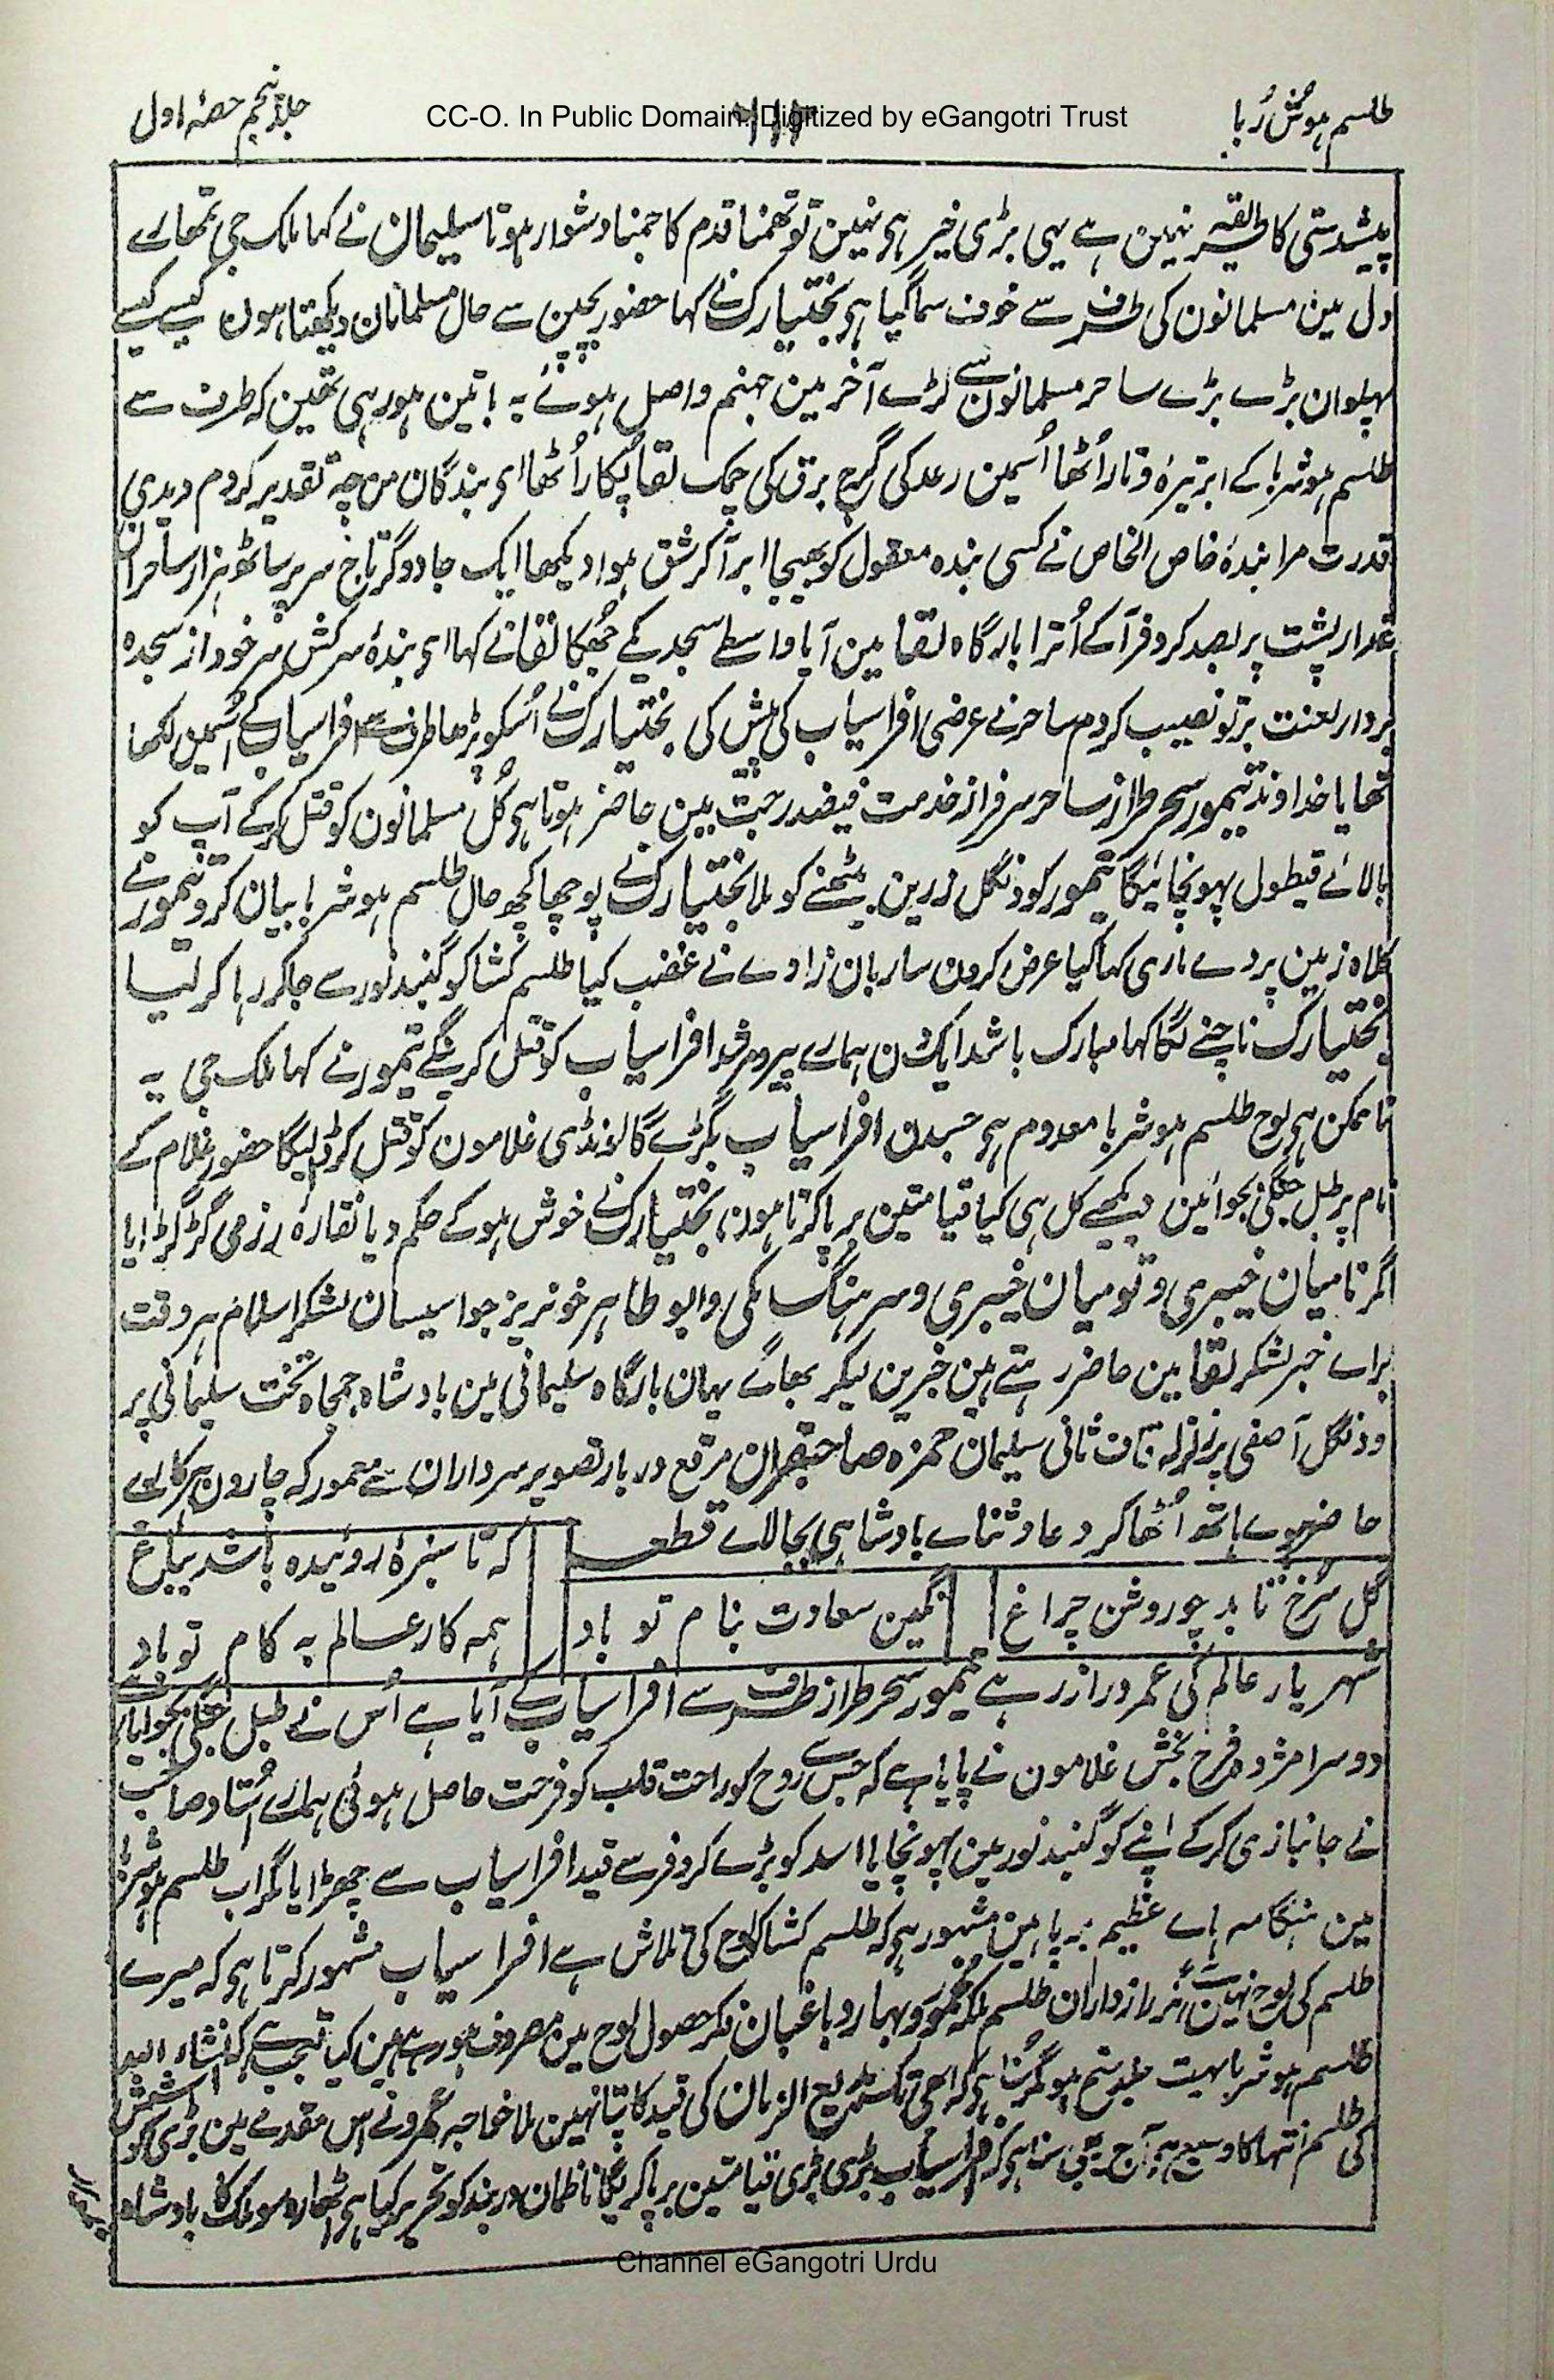 طلسم ہوش رُبا
CC-O. In Public Domain. Digitized by eGangotri Trust
جلد پنجم حصۂ اول
پیشدستی کا طریقہ نہین ہے یہی بڑی خیر ہی نہین تو تھمنا قدم کا جمنا دشوار ہوتا سلیمان نے کہا ملک جی تمھارے
دل مین مسلمانون کی طرف سے خوف سما گیا ہی بختیارک نے کہا حضور بچپن سے حال مسلمانان دیکھتا ہون کیسے کیسے
پہلوان بڑے بڑے ساحر مسلمانون سے لڑے آخر مین جہنم واصل ہوئے یہ باتین ہو رہی تھین کہ طرف سے
طلسم ہوشربا کے ابر تیرۂ و تار اُٹھا اُسمین رعد کی گرج برق کی چمک لقا پُکار اُٹھا ای بندگان من چہ تقدیر کردم دیدی
قدرت مرا بندۂ خاص الخاص نے کسی بندہ معقول کو بھیجا ابر آکر شق ہوا دیکھا ایک جادوگر تاج سر پر ساٹھ ہزار ساحران
غدار پشت پر بصد کروفر آکے اُترا بارگاہ لقا مین آیا واسطے سجدیکے جُھکا لقا نے کہا ای بندۂ سرکش سر خود از سجدہ
بردار لعنت بر تو نصیب کردم ساحر نے عرضی افراسیاب کی پیش کی بختیارک نے اُسکو پڑھا طرف سے افراسیاب کے اُسمین لکھا
تھا یا خداوند تیمور سحر طراز ساحر سرفراز خدمت فیضدرجت مین حاضر ہوتا ہی کُل مسلمانون کو قتل کرکے آپ کو
بالائے قیطول پہونچائیگا تیمور کو دنگل زرین بیٹھنے کو ملا بختیارک نے پوچھا کچھ حال طلسم ہوشربا بیان کرو تیمور نے
کلاہ زمین پر دے ماری کہا کیا عرض کرون ساربان زادے نے غضب کیا طلسم کشا کو گنبد نور سے جاکر رہا کر لیا
بختیارک ناچنے لگا کہا مبارک باشد ایکدن ہمارے پیر و مرشد افراسیاب کو قتل کرینگے تیمور نے کہا ملک جی یہ
نا ممکن ہی لوح طلسم ہوشربا معدوم ہی جسدن افراسیاب بگڑے گا لونڈی غلامون کو قتل کر ڈالیگا حضور غلام کے
نام پر طبل جنگی بجوائین دیکھیے کل ہی کیا قیامتین برپا کرتا ہون بختیارک نے خوش ہوکے حکم دیا نقارۂ رزمی گڑگڑایا
اگر نامیان خیبری و تومیان خیبری و سرہنگ مکی و ابو طاہر خونریز جواسیسان لشکر اسلام ہر وقت
براے خبر لشکر لقا مین حاضر رہتے ہین خبرین لیکر بھاگے یہان بارگاہ سلیمانی مین بادشاہ جمجاہ تخت سلیمانی پر
و دنگل آصفی پر زلزلہ قاف ثانی سلیمان حمزہ صاحبقران مرقع دربار تصویر سرداران سے معمور کہ چارون ہرکارے
حاضر ہوے ہاتھ اُٹھا کر دعا و ثناے بادشاہی بجا لاے قطعہ
کہ تا سبزۂ روئیدہ باشد بباغ
گل سُرخ تابد چو روشن چراغ
نگین سعادت بنام تو باد
ہمہ کار عالم بہ کام تو باد
شہریار عالم کی عمر دراز رہے تیمور سحر طراز طرف سے افراسیاب کے آیا ہے اُس نے طبل جنگی بجوایا ہے
دوسرا مژدہ فرح بخش غلامون نے پایا ہے کہ جس سے روح کو راحت قلب کو فرحت حاصل ہوئی ہمارے اُستاد صاحب
نے جانبازی کرکے اپنے کو گنبد نور مین پہونچایا اسد کو بڑے کروفر سے قید افراسیاب سے چھڑایا مگر اب طلسم ہوشربا
مین ہنگامہ ہاے عظیم برپا ہین مشہور ہی کہ طلسم کشا کو لوح کی تلاش ہے افراسیاب مشہور کرتا ہی کہ میرے
طلسم کی لوح نہین ہے رازداران طلسم ملکہ مخمور و بہار و باغبان فکر حصول لوح مین مصروف ہو رہے ہین کیا تعجب ہے کہ انشاء اللہ
طلسم ہوشربا بہت جلد ہو مگر سنا ہی کہ ابھی تک بدیع الزمان کی قید کا پتا نہین ملا خواجہ عمرو نے اس مقدمے مین بڑی کوشش
کی طلسم انتہا کا وسیع ہی آج یہ بھی سنا ہی کہ افراسیاب بڑی بڑی قیامتین برپا کریگا ناظمان دربند کو تحریر کیا ہی اٹھارہ سو ملک کا بادشاہ
Channel eGangotri Urdu